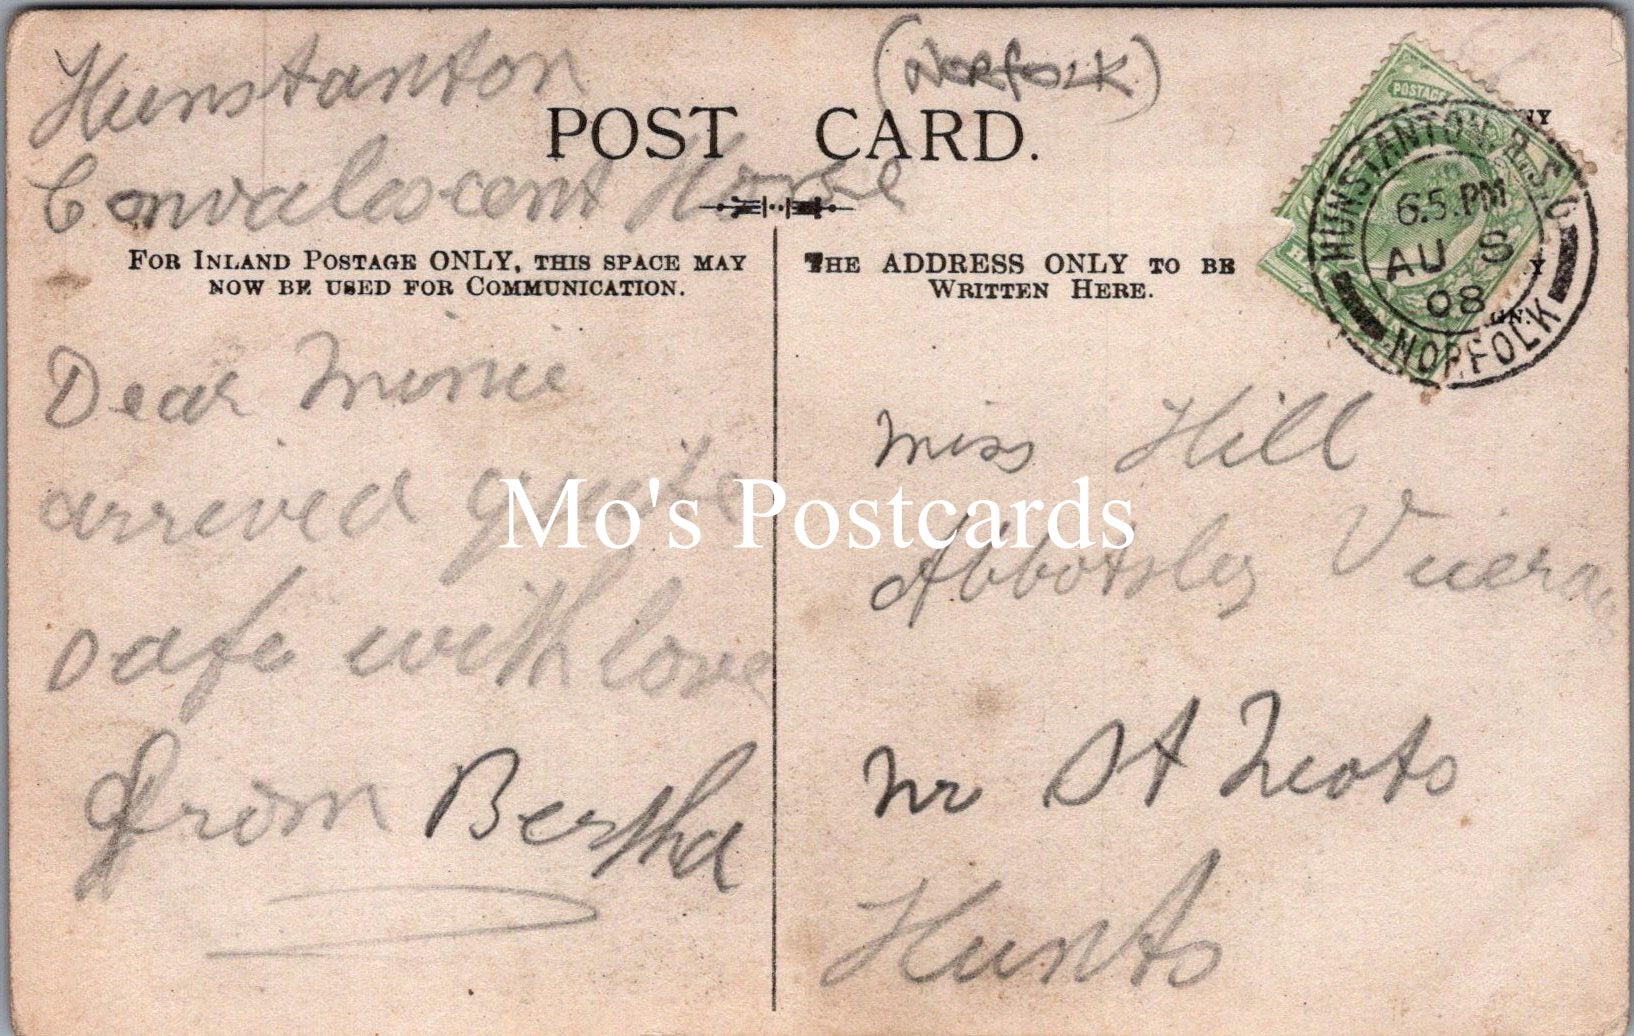 Hunstanton
(Norfolk)
POST CARD.
Convalescent Home
FOR INLAND POSTAGE ONLY, THIS SPACE MAY
NOW BE USED FOR COMMUNICATION.
THE ADDRESS ONLY TO BE
WRITTEN HERE.
POSTAGE
HUNSTANTON R.S.O.
6.5.PM
AU 8
08
NORFOLK
GN.
Dear Minie
arrived quite
safe with love
from Bertha
Miss Hill
Abbotsley Vicerag
nr St Neots
Hunts
Mo's Postcards